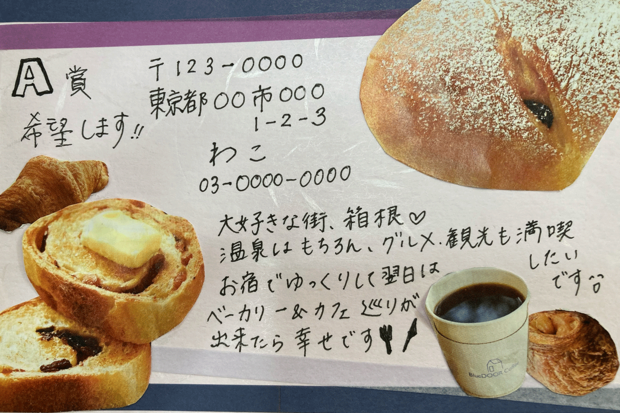 A賞
希望します!!
〒123-0000
東京都〇〇市〇〇〇
1-2-3
わこ
03-0000-0000
大好きな街、箱根♡
温泉はもちろん、グルメ・観光も満喫
したい
です
お宿でゆっくりして翌日は
ベーカリー&カフェ巡りが
出来たら幸せです